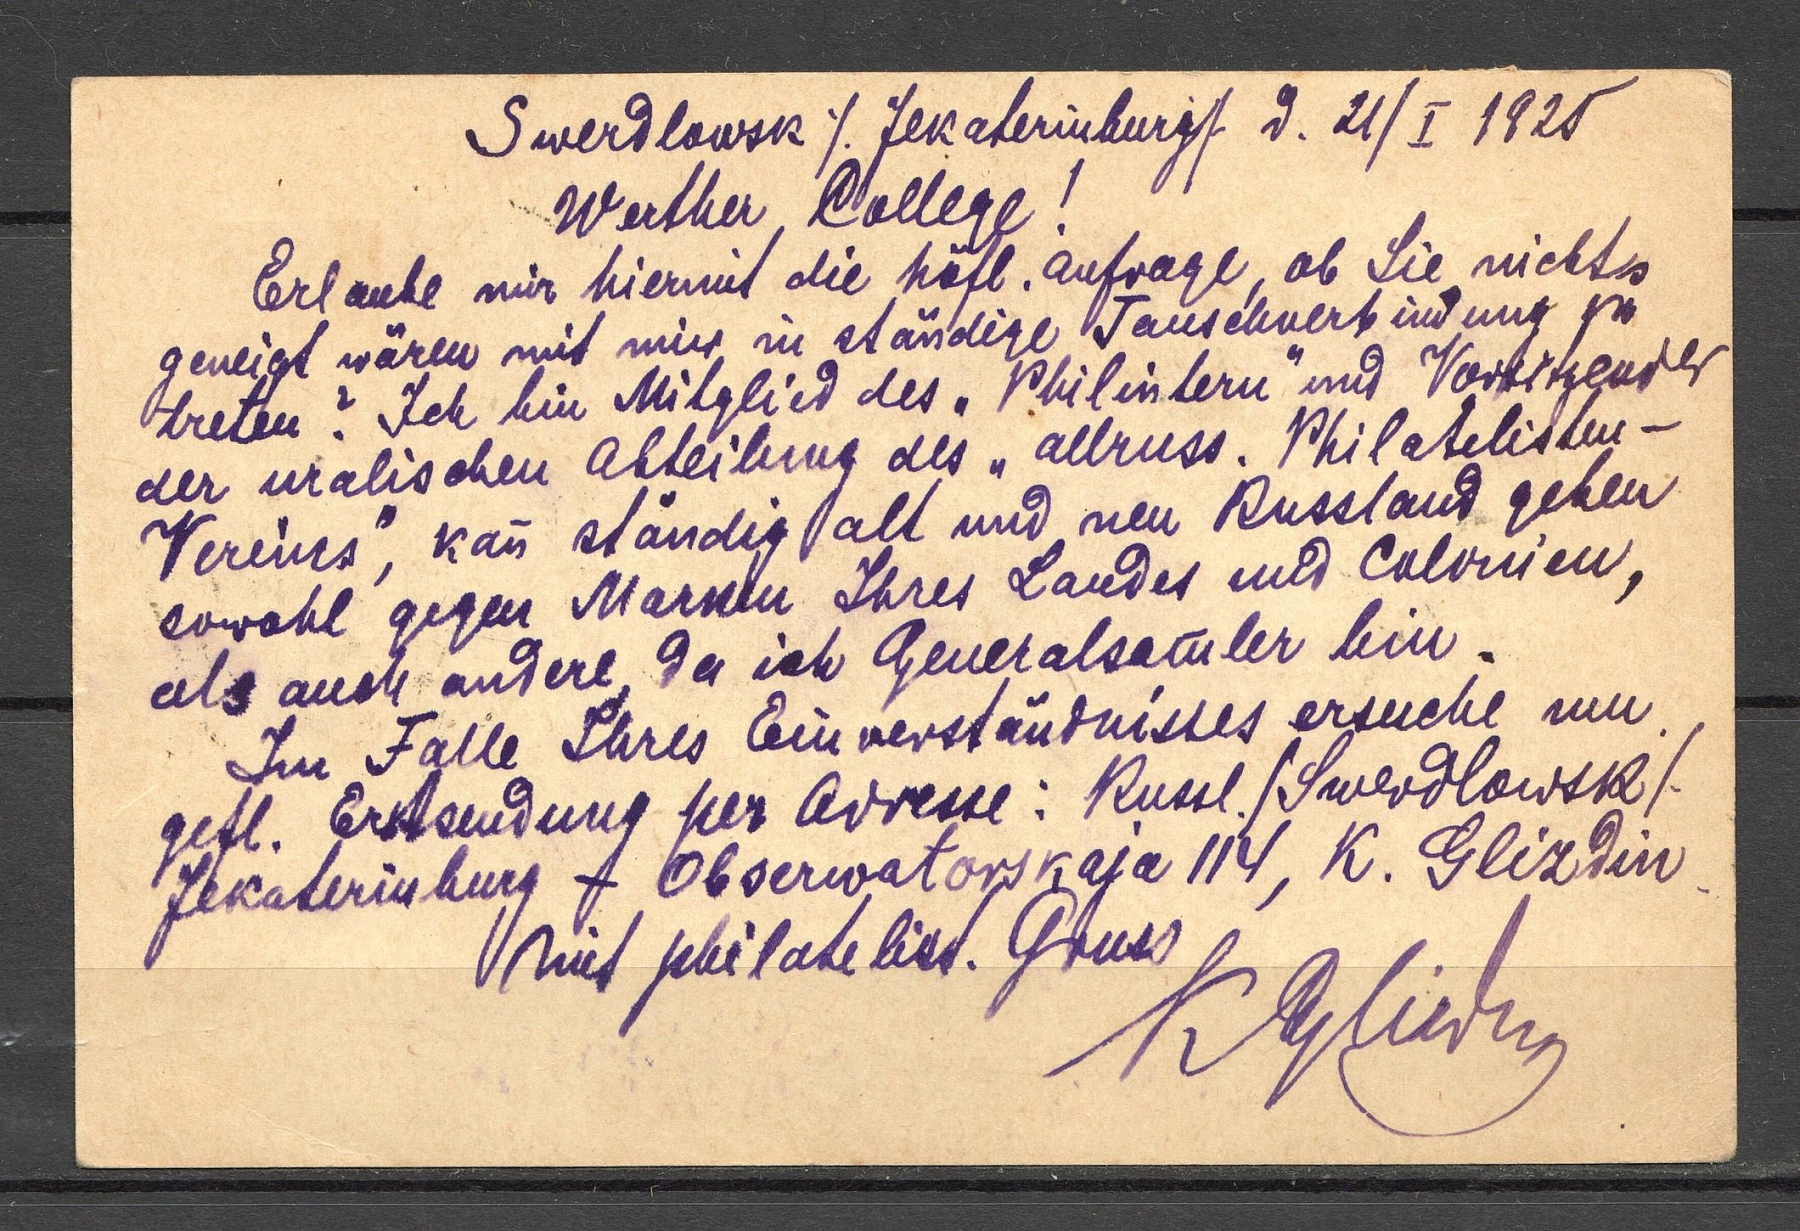 Swerdlowsk /. Jekaterinburg/. d. 21/I 1925
Werther College!
Erlaube mir hiermit die höfl. Anfrage, ob Sie nicht
geneigt wären mit mir in ständige Tauschverbindung zu
treten? Ich bin Mitglied des „Philintern" und Vorsitzender
der uralischen Abteilung des „allruss. Philatelisten-
Vereins", kan̄ ständig alt und neu Russland geben
sowohl gegen Marken Ihres Landes und Colonien,
als auch andere, da ich Generalsam̄ler bin.
Im Falle Ihres Einverständnisses ersuche um
gefl. Erstsendung per Adresse: Russl. /Swerdlowsk/.
Jekaterinburg – Observatorskaja 114, K. Glizdin
Mit philatelist. Gruss
K Glizdin